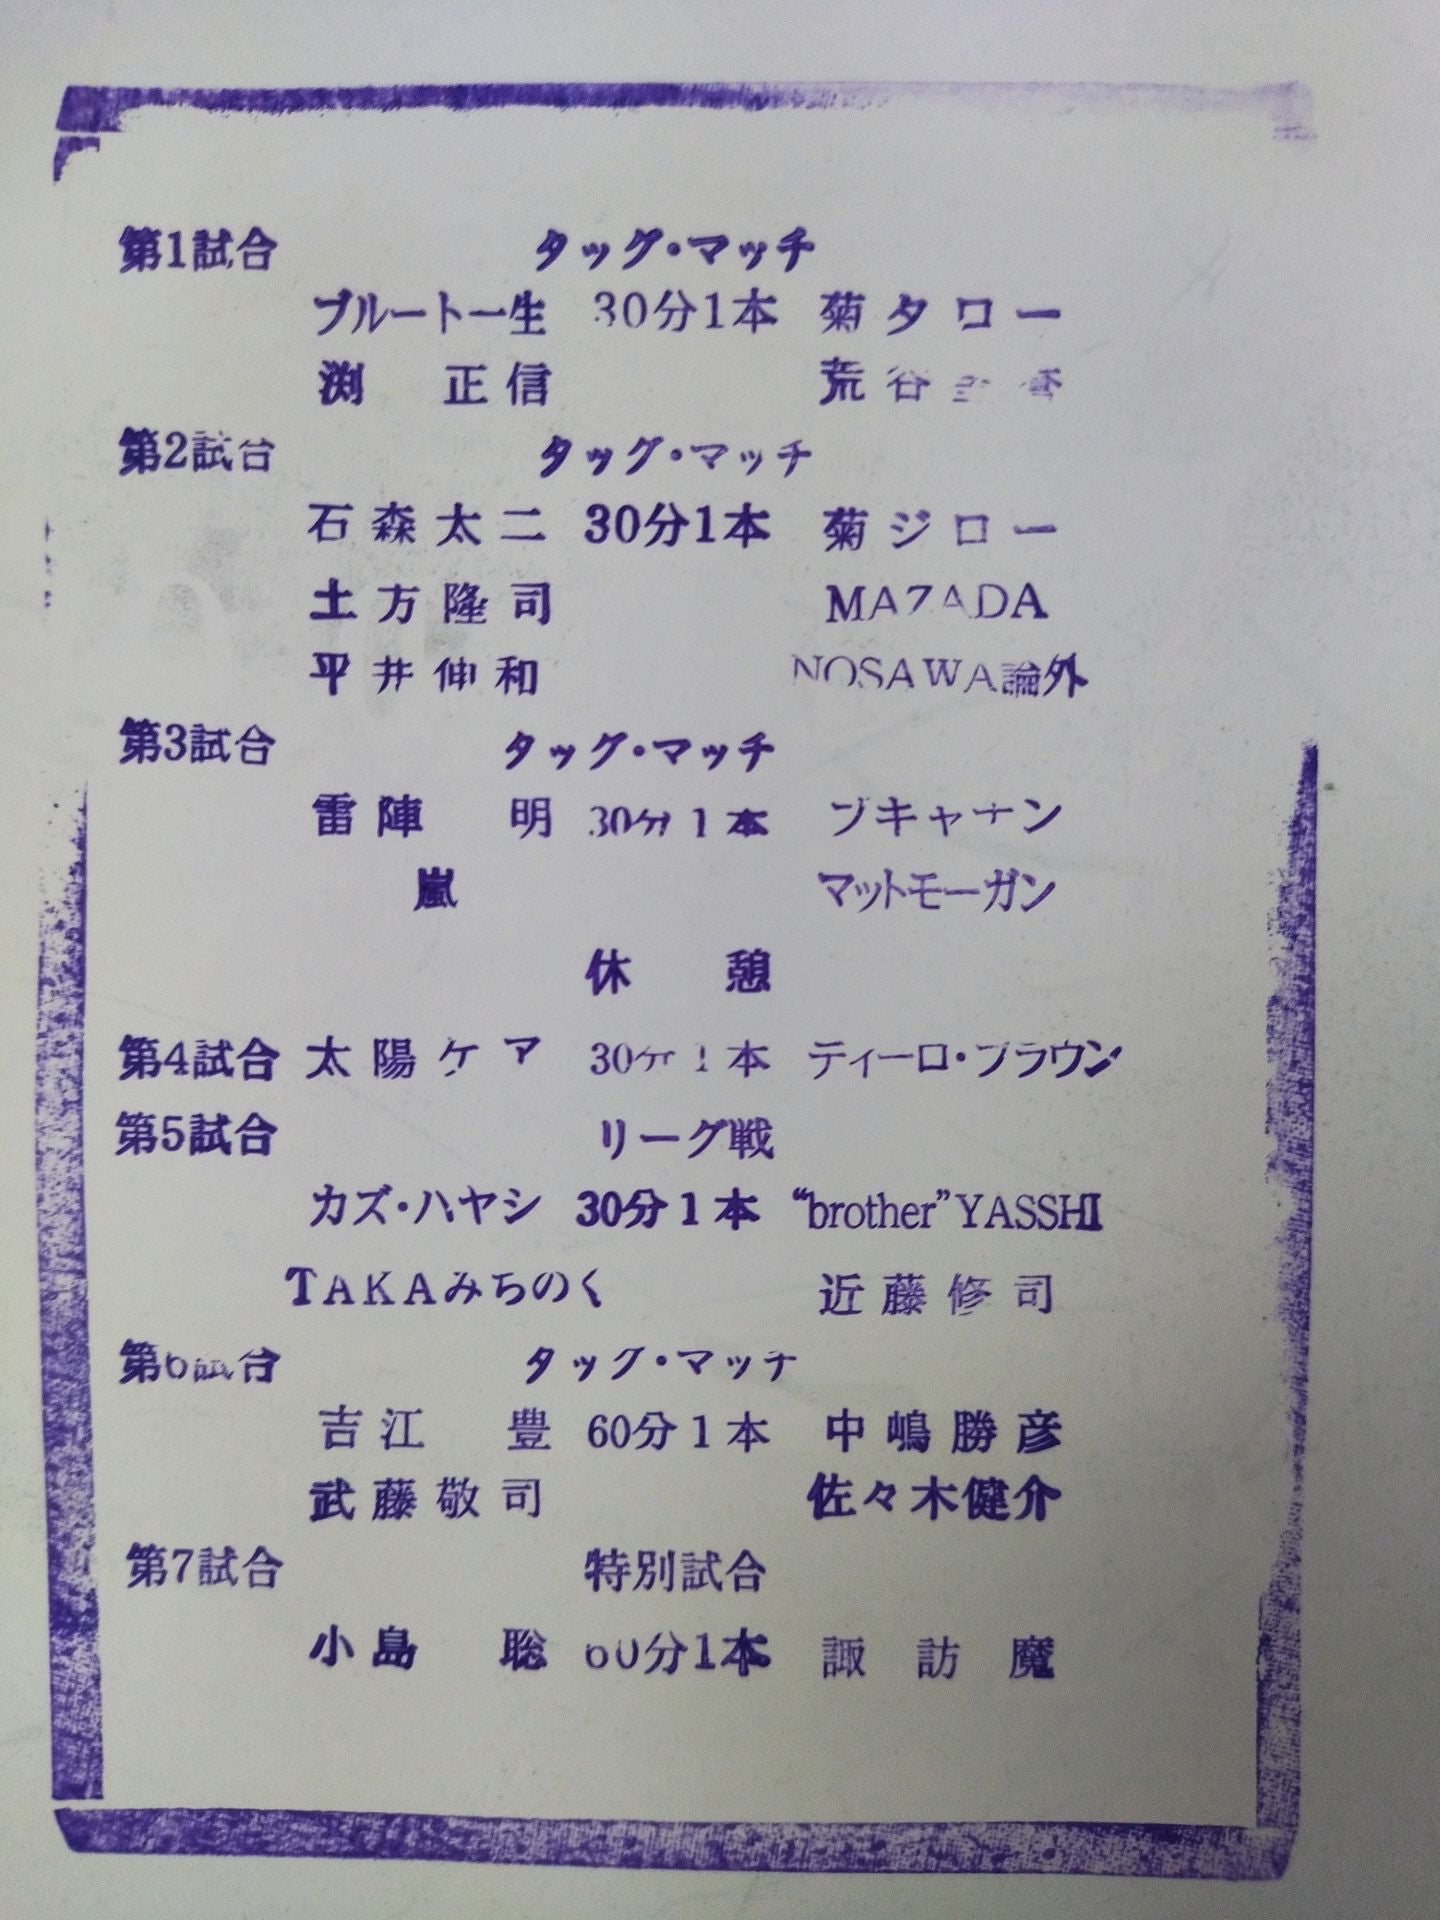 第1試合 タッグ・マッチ
ブルート一生 30分1本 菊タロー
渕 正信 荒谷
第2試合 タッグ・マッチ
石森太二 30分1本 菊ジロー
土方隆司 MAZADA
平井伸和 NOSAWA論外
第3試合 タッグ・マッチ
雷陣 明 30分1本 ブキャナン
嵐 マットモーガン
休 憩
第4試合 太陽ケア 30分1本 ディーロ・ブラウン
第5試合 リーグ戦
カズ・ハヤシ 30分1本 “brother”YASSHI
TAKAみちのく 近藤修司
第6試合 タッグ・マッチ
吉江 豊 60分1本 中嶋勝彦
武藤敬司 佐々木健介
第7試合 特別試合
小島 聡 60分1本 諏訪魔